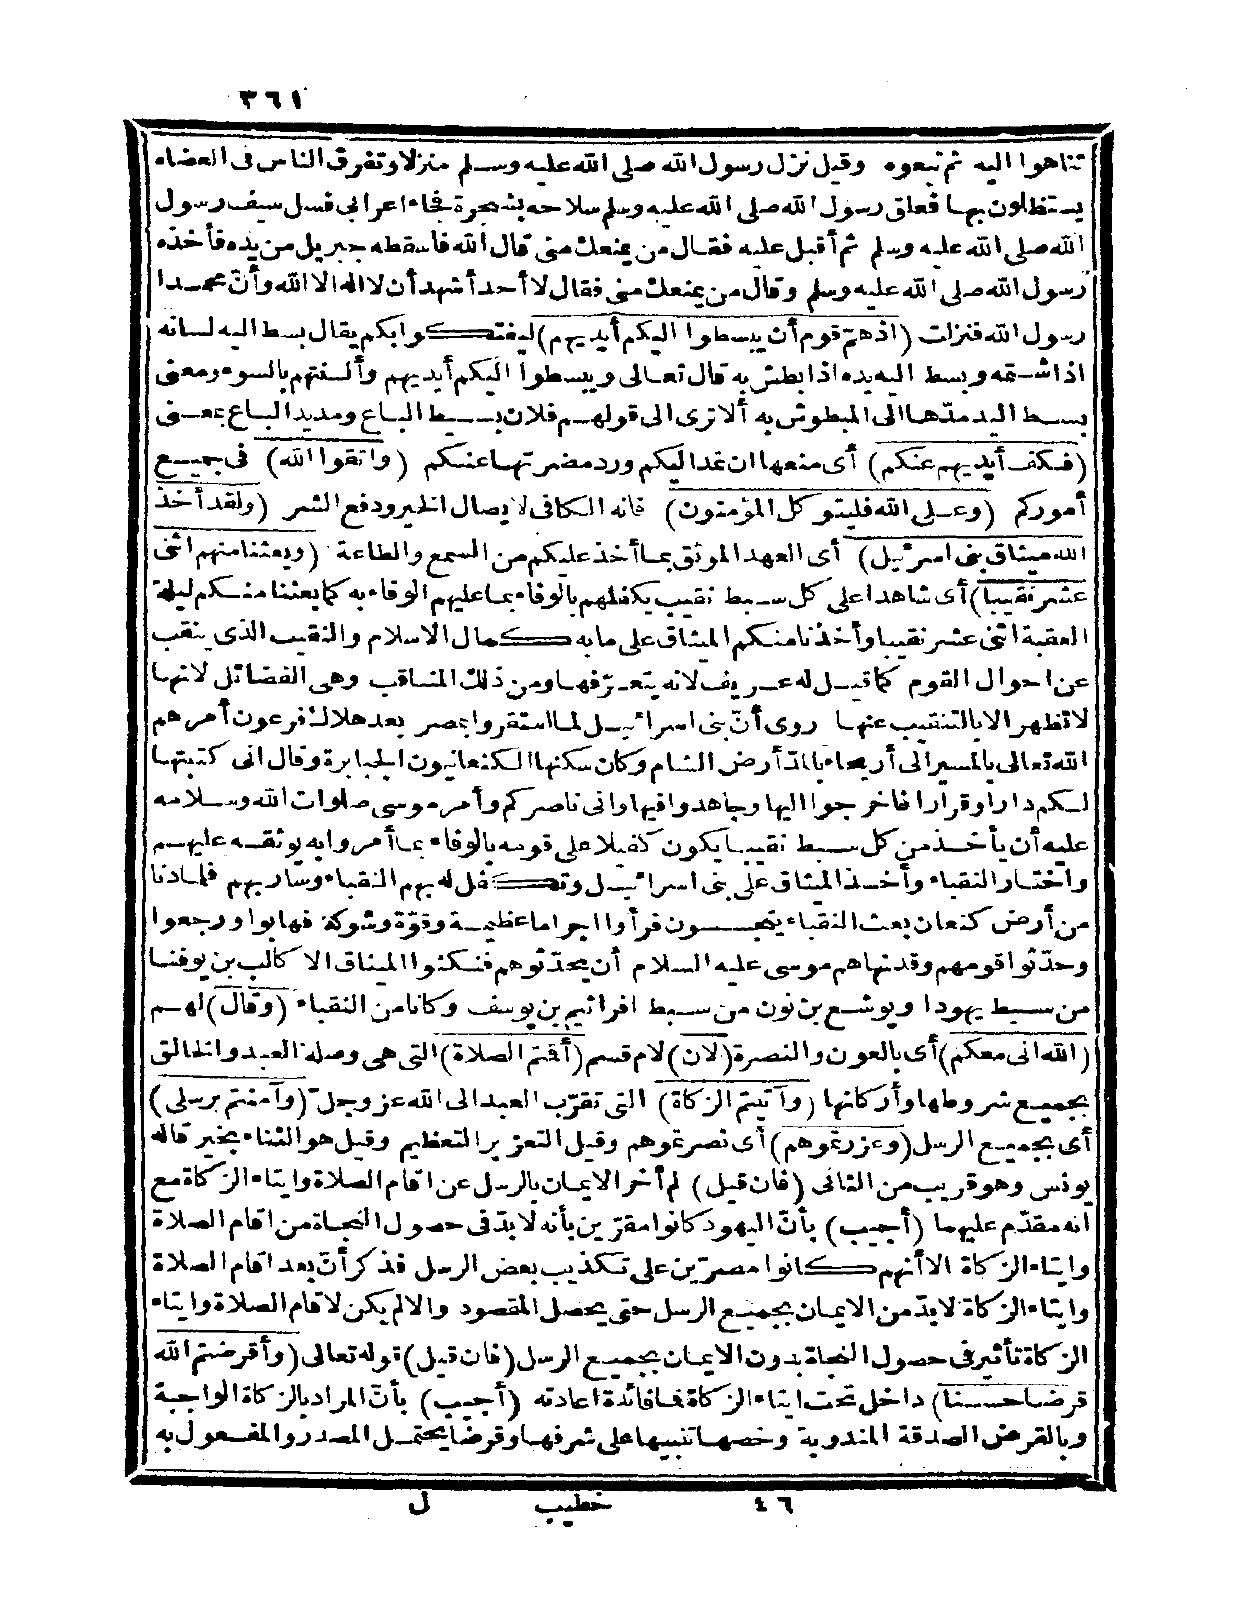 ٣٦١
تناهوا اليه ثم تبعوه وقيل نزل رسول الله صلى الله عليه وسلم منزلا وتفرق الناس فى العضاه
يستظلون بها فعلق رسول الله صلى الله عليه وسلم سلاحه بشجرة فجاء اعرابى فسل سيف رسول
الله صلى الله عليه وسلم ثم أقبل عليه فقال من يمنعك منى قال الله فاسقطه جبريل من يده فأخذه
رسول الله صلى الله عليه وسلم وقال من يمنعك منى فقال لا أحد أشهد أن لا اله الا الله وأنّ محمدا
رسول الله فنزلت (اذ همّ قوم أن يبسطوا اليكم أيديهم) ليفتكوا بكم يقال بسط اليه لسانه
اذا شتمه وبسط اليه يده اذا بطش به قال تعالى ويبسطوا اليكم أيديهم وألسنتهم بالسوء ومعنى
بسط اليد مدّها الى المبطوش به ألا ترى الى قولهم فلان بسيط الباع ومديد الباع بمعنى
(فكف أيديهم عنكم) أى منعها ان تمد اليكم ورد مضرتها عنكم (واتقوا الله) فى جميع
أموركم (وعلى الله فليتوكل المؤمنون) فانه الكافى لايصال الخير ودفع الشر (ولقد أخذ
الله ميثاق بنى اسرئيل) أى العهد الموثق بما أخذ عليكم من السمع والطاعة (وبعثنا منهم اثنى
عشر نقيبا) أى شاهدا على كل سبط نقيب يكفلهم بالوفاء بما عليهم الوفاء به كما بعثنا منكم ليلة
العقبة اثنى عشر نقيبا وأخذنا منكم الميثاق على ما به كمال الاسلام والنقيب الذى ينقب
عن احوال القوم كما قيل له عريف لانه يتعرّفها ومن ذلك المناقب وهى الفضائل لانها
لا تظهر الا بالتنقيب عنها روى أنّ بنى اسرائيل لما استقروا بمصر بعد هلاك فرعون أمرهم
الله تعالى بالمسير الى أريحاء بالمدّ أرض الشام وكان سكنها الكنعانيون الجبابرة وقال انى كتبتها
لكم دارا وقرارا فاخرجوا اليها وجاهدوا فيها وانى ناصركم وأمر موسى صلوات الله وسلامه
عليه أن يأخذ من كل سبط نقيبا يكون كفيلا على قومه بالوفاء بما أمروا به يوثقه عليهم
واختار النقباء وأخذ الميثاق على بنى اسرائيل وتكفل له بهم النقباء وسار بهم فلما دنا
من أرض كنعان بعث النقباء يتجسسون فرأوا اجراما عظيمة وقوّة وشوكة فهابوا ورجعوا
وحدّثوا قومهم وقد نهاهم موسى عليه السلام أن يحدّثوهم فنكثوا الميثاق الا كالب بن يوفنا
من سبط يهودا ويوشع بن نون من سبط افرائيم بن يوسف وكانا من النقباء (وقال) لهم
(الله انى معكم) أى بالعون والنصرة (لئن) لام قسم (أقتم الصلاة) التى هى وصلة العبد والخالق
بجميع شروطها وأركانها (وآتيتم الزكاة) التى تقرّب العبد الى الله عز وجلّ (وآمنتم برسلى)
أى بجميع الرسل (وعزرتموهم) أى نصرتموهم وقيل التعزير التعظيم وقيل هو الثناء بخير قاله
يونس وهو قريب من الثانى (فان قيل) لم أخر الايمان بالرسل عن اقام الصلاة وايتاء الزكاة مع
انه مقدّم عليهما (أجيب) بأنّ اليهود كانوا مقرّين بأنه لا بدّ فى حصول النجاة من اقام الصلاة
وايتاء الزكاة الا أنهم كانوا مصرّين على تكذيب بعض الرسل فذكر أنّ بعد اقام الصلاة
وايتاء الزكاة لا بدّ من الايمان بجميع الرسل حتى يحصل المقصود والا لم يكن لاقام الصلاة وايتاء
الزكاة تأثير فى حصول النجاة بدون الايمان بجميع الرسل (فان قيل) قوله تعالى (وأقرضتم الله
قرضا حسنا) داخل تحت ايتاء الزكاة فما فائدة اعادته (أجيب) بأنّ المراد بالزكاة الواجبة
وبالقرض الصدقة المندوبة وخصها تنبيها على شرفها وقرضا يحتمل المصدر والمفعول به
٤٦ خطيب ل